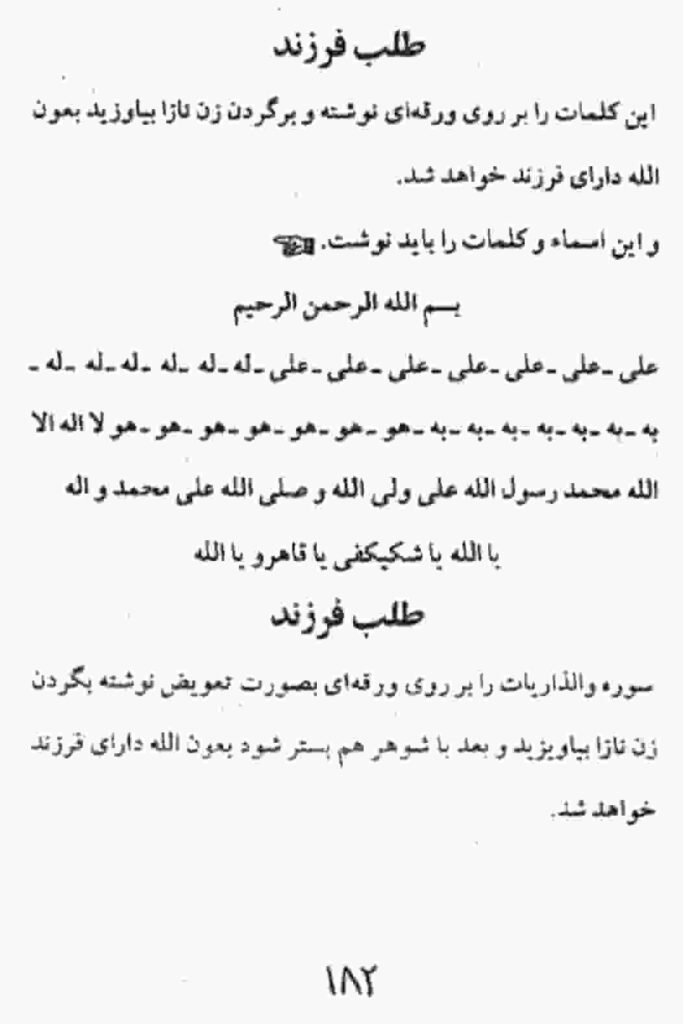 طلب فرزند
این کلمات را بر روی ورقه‌ای نوشته و برگردن زن نازا بیاوزید بعون
الله دارای فرزند خواهد شد.
و این اسماء و کلمات را باید نوشت.
بسم الله الرحمن الرحیم
علی ـ علی ـ علی ـ علی ـ علی ـ علی ـ علی ـ له ـ له ـ له ـ له ـ له ـ له ـ
به ـ به ـ به ـ به ـ به ـ به ـ به ـ هو ـ هو ـ هو ـ هو ـ هو ـ هو ـ هو لا اله الا
الله محمد رسول الله علی ولی الله و صلی الله علی محمد و اله
با الله یا شکیکفی یا قاهرو یا الله
طلب فرزند
سوره والذاریات را بر روی ورقه‌ای بصورت تعویض نوشته بگردن
زن نازا بیاویزید و بعد با شوهر هم بستر شود بعون الله دارای فرزند
خواهد شد.
۱۸۲